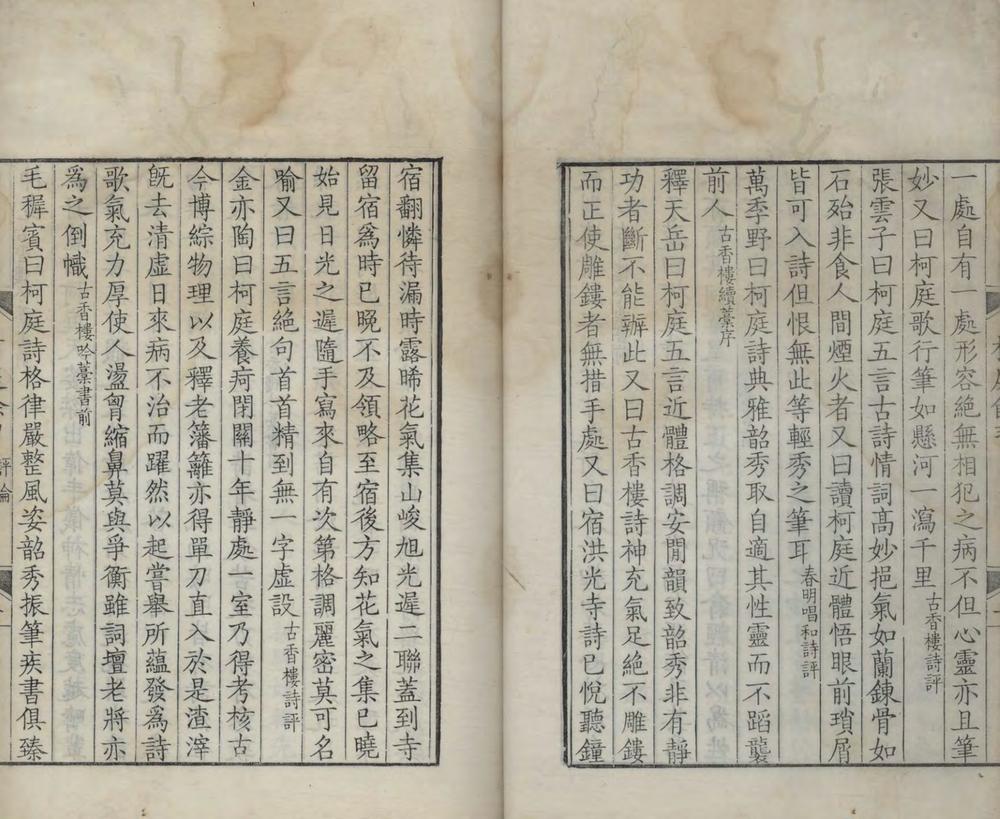 一處自有一處形容絕無相犯之病不但心靈亦且筆
妙又曰柯庭歌行筆如懸河一瀉千里古香樓詩評
張雲子曰柯庭五言古詩情詞高妙挹氣如蘭鍊骨如
石殆非食人間煙火者又曰讀柯庭近體悟眼前瑣屑
皆可入詩但恨無此等輕秀之筆耳春明唱和詩評
萬季野曰柯庭詩典雅韶秀取自適其性靈而不蹈襲
前人古香樓續藁序
釋天岳曰柯庭五言近體格調安閒韻致韶秀非有靜
功者斷不能辦此又曰古香樓詩神充氣足絕不雕鏤
而正使雕鏤者無措手處又曰宿洪光寺詩已悅聽鐘
宿翻憐待漏時露晞花氣集山峻旭光遲二聯蓋到寺
留宿爲時已晚不及領略至宿後方知花氣之集已曉
始見日光之遲隨手寫來自有次第格調麗密莫可名
喻又曰五言絕句首首精到無一字虛設古香樓詩評
金亦陶曰柯庭養疴閉關十年靜處一室乃得考核古
今博綜物理以及釋老籓籬亦得單刀直入於是渣滓
旣去清虛日來病不治而躍然以起嘗舉所蘊發爲詩
歌氣充力厚使人盪胷縮鼻莫與爭衡雖詞壇老將亦
爲之倒幟古香樓吟藁書前
毛稺賓曰柯庭詩格律嚴整風姿韶秀振筆疾書俱臻
評論